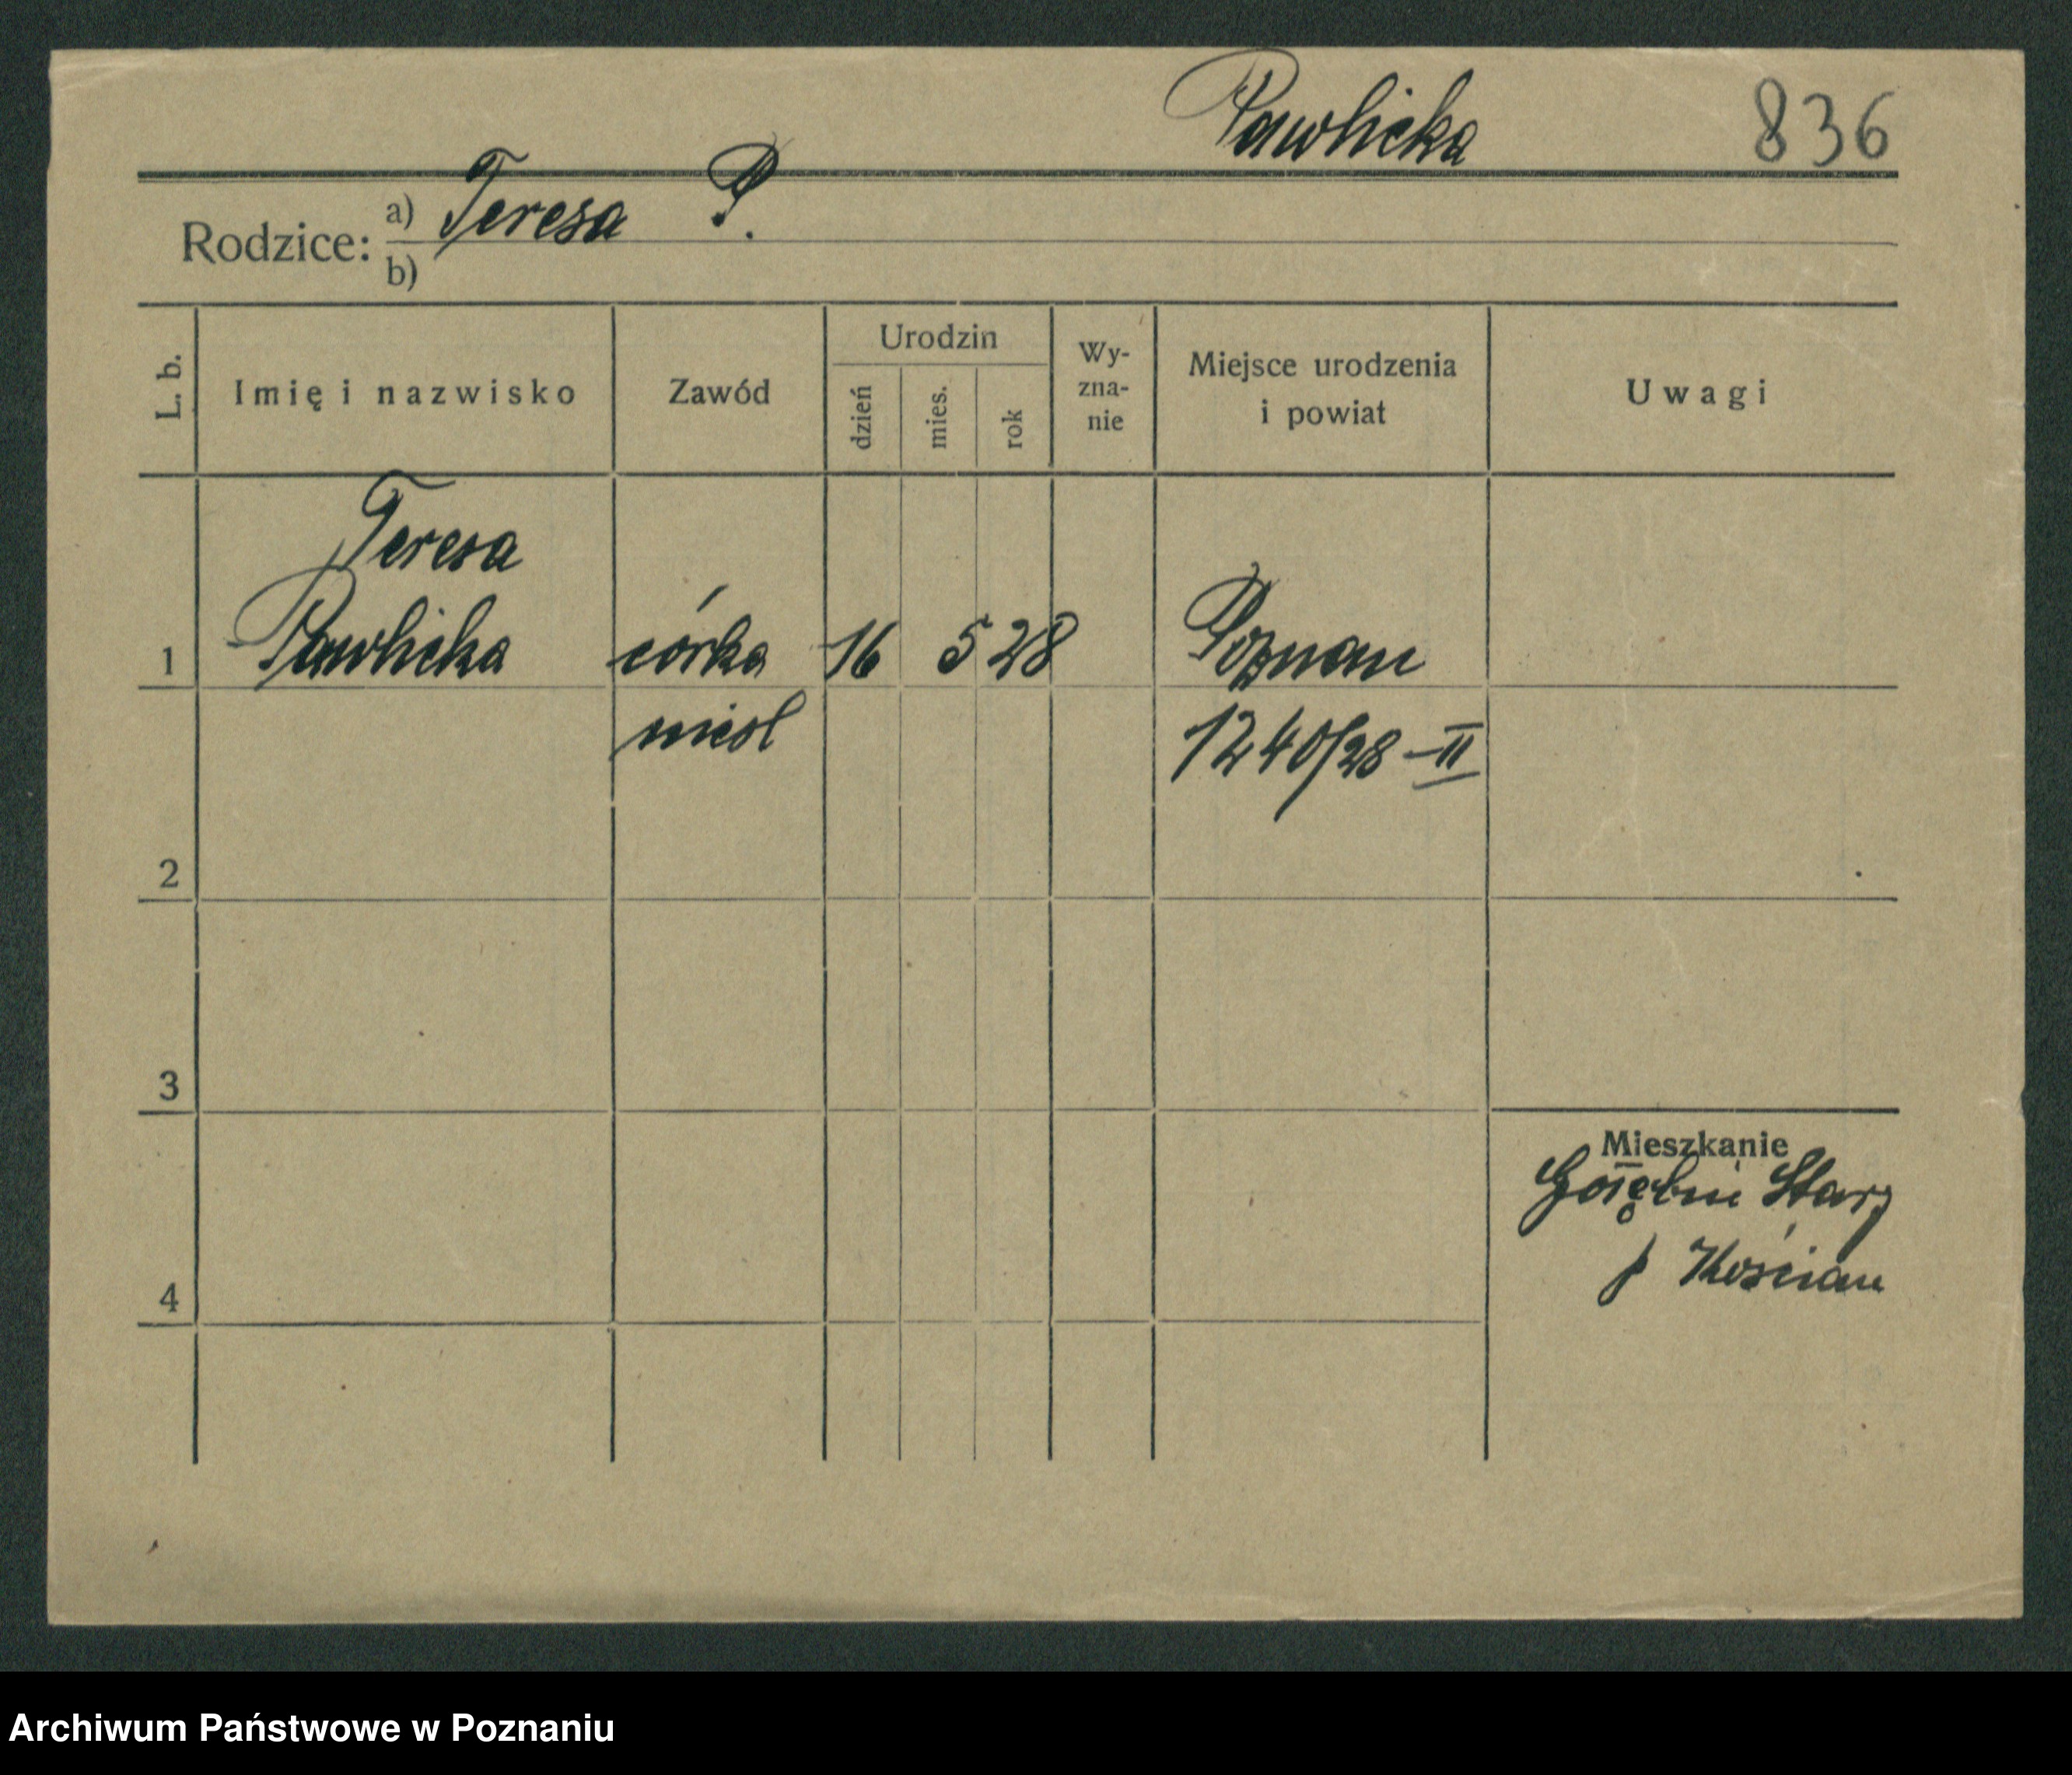 Pawlicka 836
Rodzice: a) Teresa P.
b)
L. b. Imię i nazwisko Zawód Urodzin dzień mies. rok Wy-zna-nie Miejsce urodzenia i powiat Uwagi
Teresa
1 Pawlicka córka 16 5 28 Poznan
nieśl 1240/28-II
2
3
Mieszkanie
Gołębin Stary
4 p Kościan
Archiwum Państwowe w Poznaniu